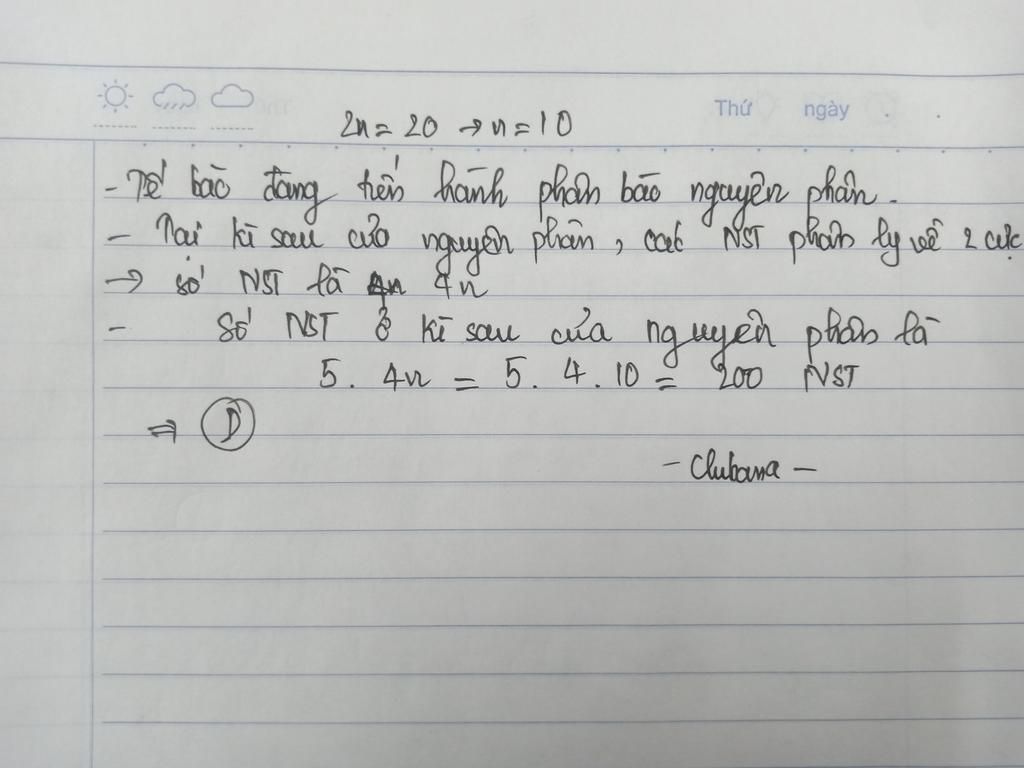 Thứ ngày
2n = 20 → n = 10
- Tế bào đang tiến hành phân bào nguyên phân.
- Tại kì sau của nguyên phân, các NST phân ly về 2 cực
→ số NST là 4n
- Số NST ở kì sau của nguyên phân là
5 . 4n = 5 . 4 . 10 = 200 NST
⇒ D
- Clubana -